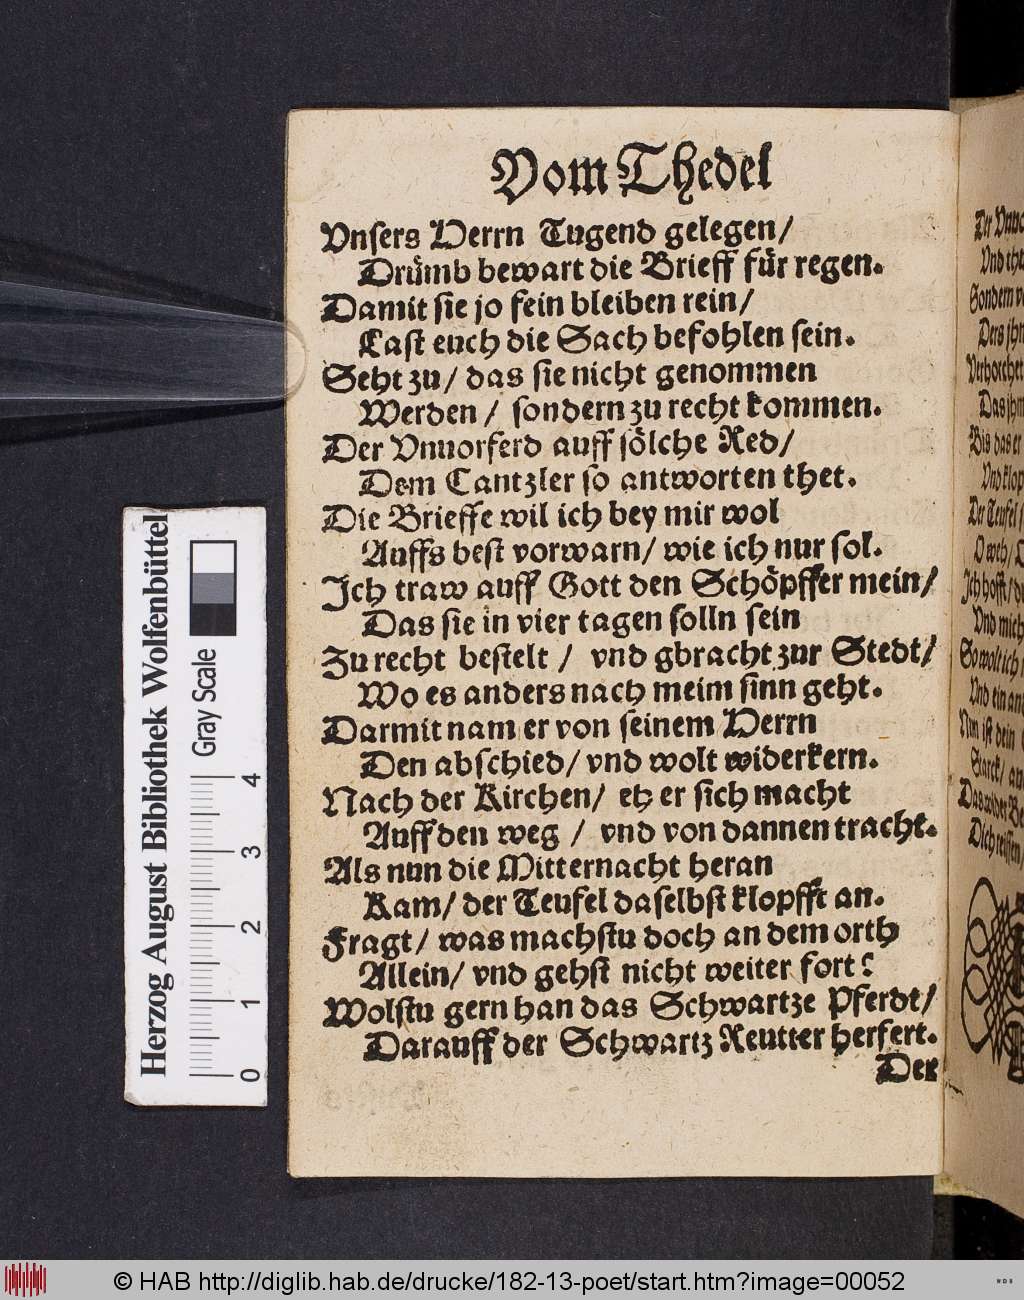 Vom Thedel
Vnsers Herrn Tugend gelegen/
Drümb bewart die Brieff für regen.
Damit sie jo fein bleiben rein/
Last euch die Sach befohlen sein.
Seht zu/ das sie nicht genommen
Werden / sondern zu recht kommen.
Der Vnuorferd auff sölche Red/
Dem Cantzler so antworten thet.
Die Brieffe wil ich bey mir wol
Auffs best vorwarn/ wie ich nur sol.
Ich traw auff Gott den Schöpffer mein/
Das sie in vier tagen solln sein
Zu recht bestelt / vnd gbracht zur Stedt/
Wo es anders nach meim sinn geht.
Darmit nam er von seinem Herrn
Den abschied/ vnd wolt widerkern.
Nach der Kirchen/ eh er sich macht
Auff den weg / vnd von dannen tracht.
Als nun die Mitternacht heran
Kam/ der Teufel daselbst klopfft an.
Fragt/ was machstu doch an dem orth
Allein/ vnd gehst nicht weiter fort?
Wolstu gern han das Schwartze Pferdt/
Darauff der Schwartz Reutter herfert.
Der
Der
Vnd
Sondern
Ders
Das
Bis das er
Vnd
Der Teufel
O weh/
Ich hofft/
Vnd mich
So wolt ich
Vnd ein
Nun ist dein
Starck/
Das
Dich reissen/
Herzog August Bibliothek Wolfenbüttel
Gray Scale
0 1 2 3 4
© HAB http://diglib.hab.de/drucke/182-13-poet/start.htm?image=00052
WDB